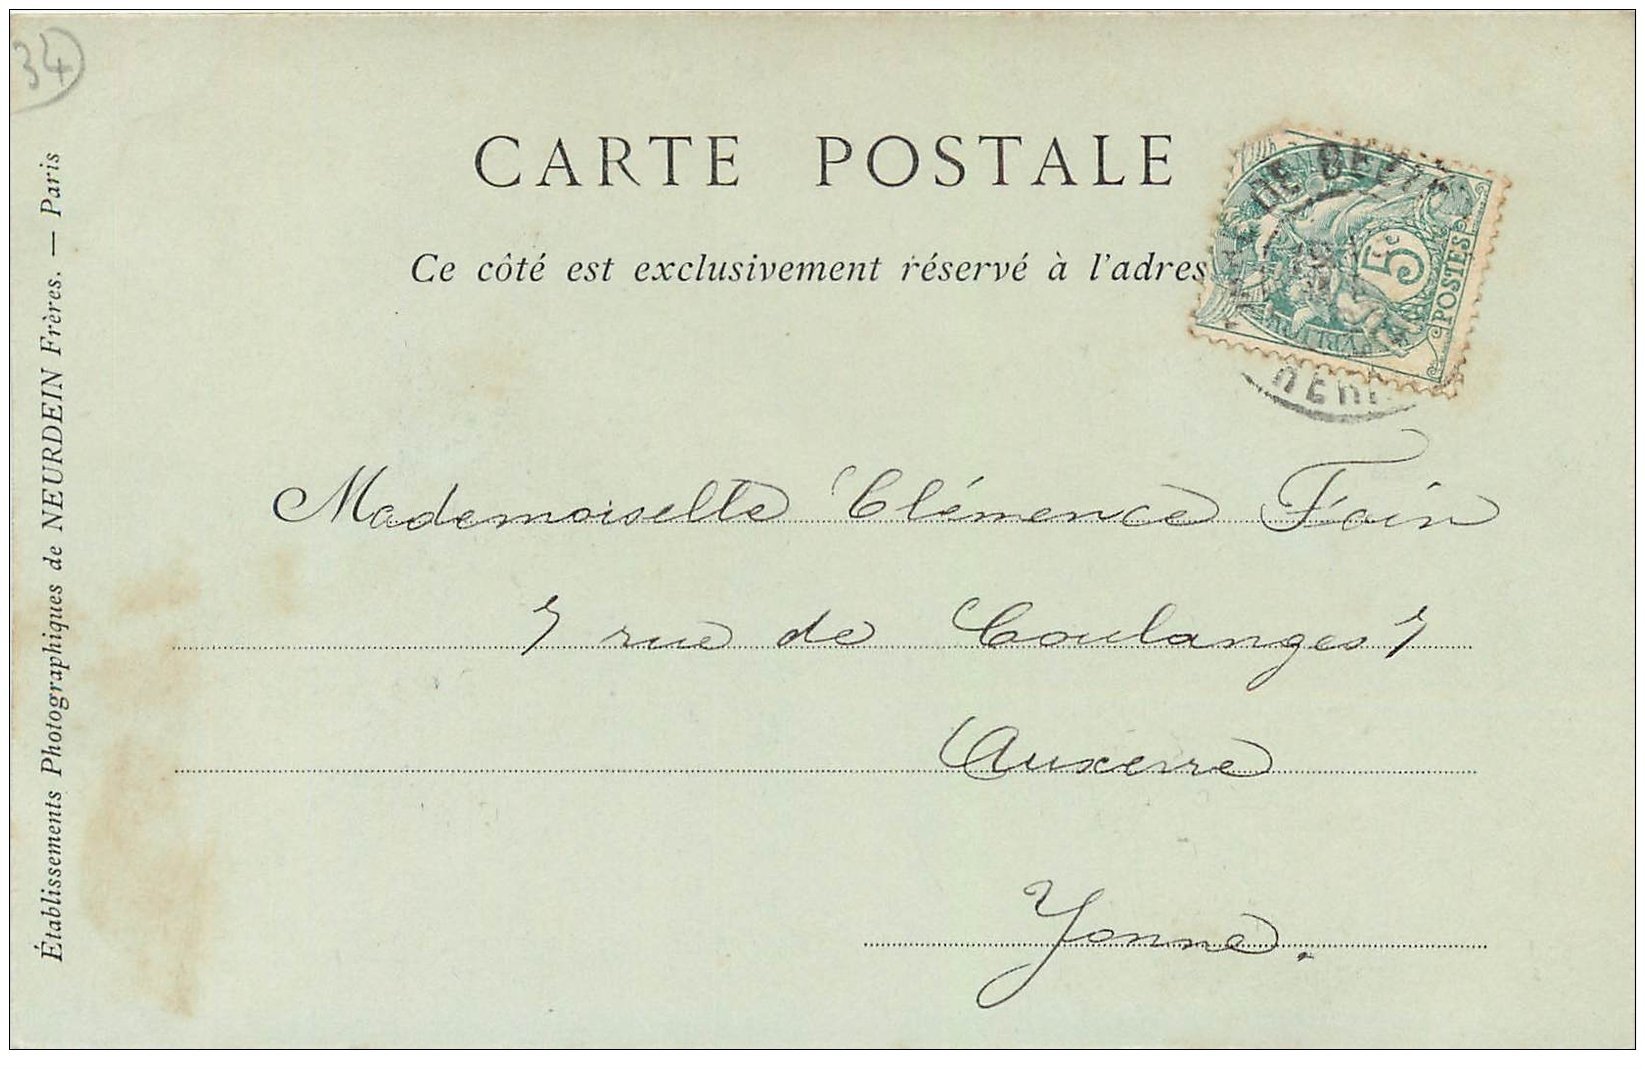 34
CARTE POSTALE
Ce côté est exclusivement réservé à l'adres
5c
POSTES
Établissements Photographiques de NEURDEIN Frères. — Paris
Mademoiselle Clémence Foin
7 rue de Coulanges 7
Auxerre
Yonne.